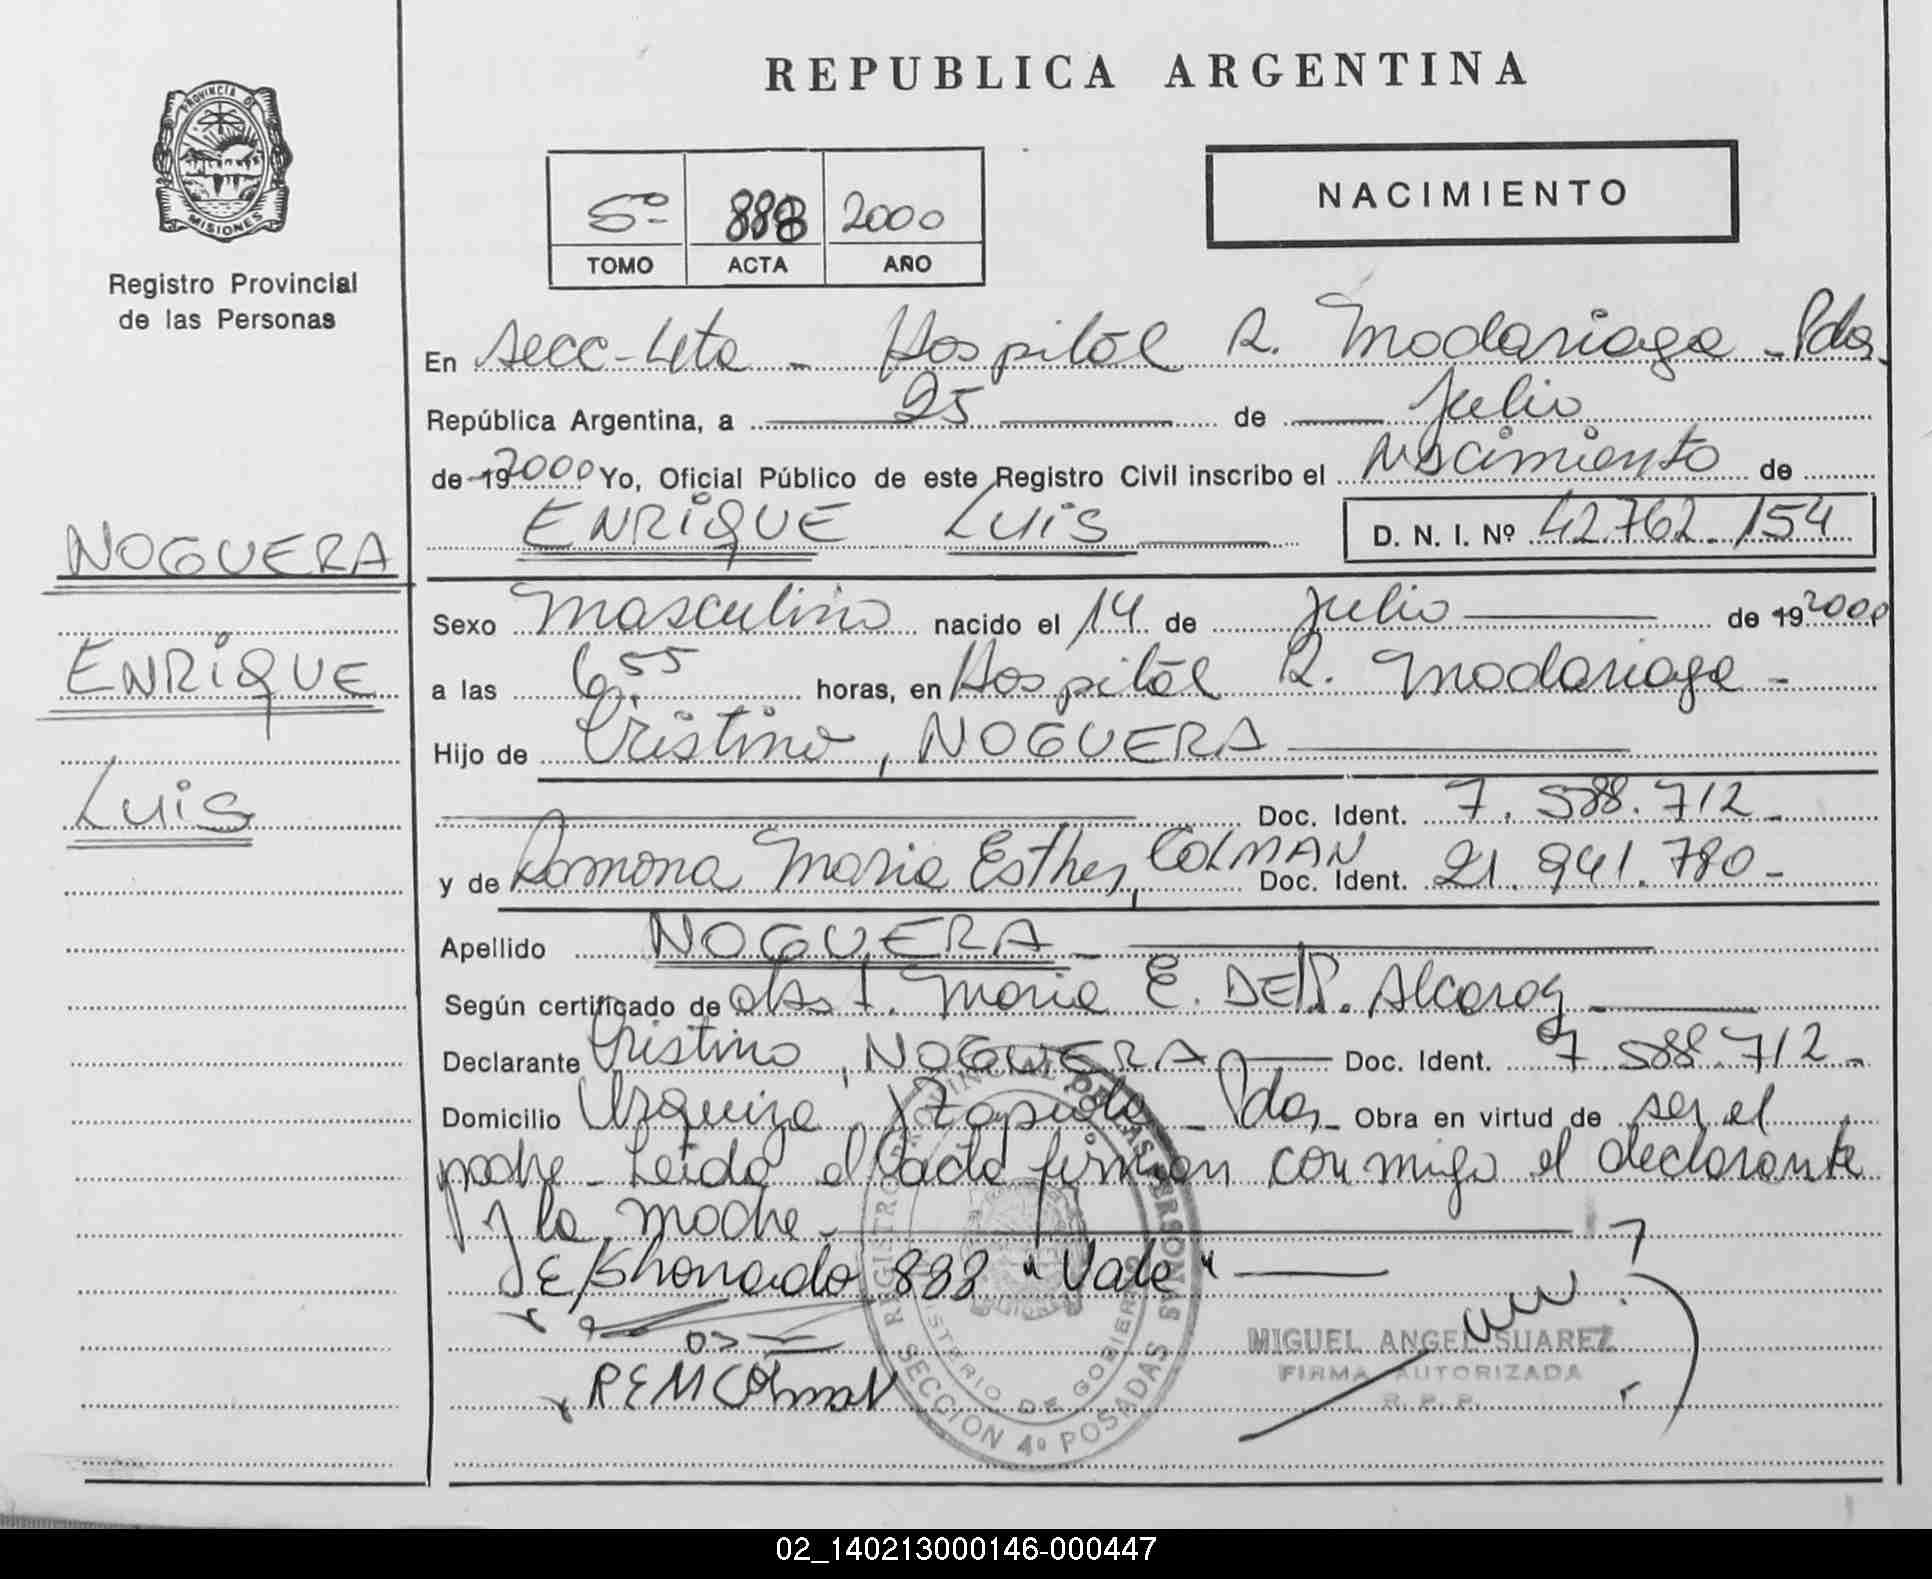 REPUBLICA ARGENTINA
PROVINCIA DE
MISIONES
Registro Provincial
de las Personas
5º 888 2000
TOMO ACTA AÑO
NACIMIENTO
En secc-4ta - Hospital R. Madariaga - Pdas.
República Argentina, a 25 de Julio
de 19 2000 Yo, Oficial Público de este Registro Civil inscribo el Nacimiento de
ENRIQUE LUIS D. N. I. Nº 42.762.154
NOGUERA
ENRIQUE
LUIS
Sexo Masculino nacido el 14 de Julio de 19 2000
a las 6,55 horas, en Hospital R. Madariaga -
Hijo de Cristino, NOGUERA
Doc. Ident. 7.588.712-
y de Ramona Maria Esther, COLMAN Doc. Ident. 21.941.780-
Apellido NOGUERA -
Según certificado de obst. Maria E. DEL P. Alcaraz
Declarante Cristino, NOGUERA Doc. Ident. 7.588.712-
Domicilio Urquiza y Zapiola - Pdas - Obra en virtud de ser el
padre - Leida el acta firman conmigo el declarante
y la madre -
E/Shonado 888 "Vale"
REMColmaN
MIGUEL ANGEL SUAREZ
FIRMA AUTORIZADA
R. P. P.
REGISTRO PROVINCIAL DE LAS PERSONAS
MINISTERIO DE GOBIERNO
SECCION 4º POSADAS
02_140213000146-000447